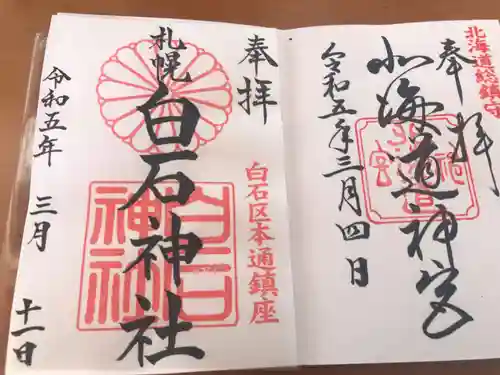 北海道総鎮守
奉拝
北海道神宮
令和五年三月四日
奉拝
白石区本通鎮座
札幌
白石神社
白石神社
令和五年 三月 十一日